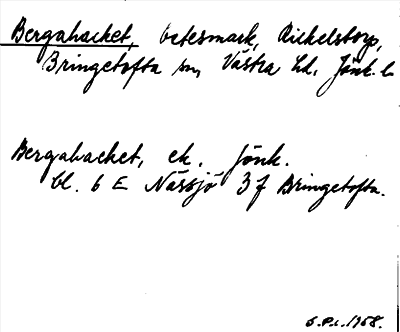 Bergabacket, betesmark, Rickelstorp,
Bringetofta sn, Västra hd, Jönk. l.
Bergabacket, ek. Jönk.
bl. 6 E Nässjö 3 f Bringetofta.
1958.